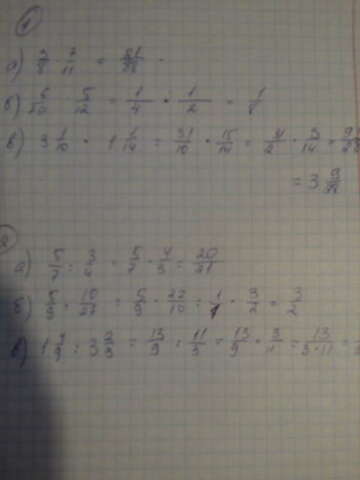 1
а) 3/8 · 7/11 = 21/88
б) 6/20 · 5/12 = 1/4 · 1/2 = 1/8
в) 3 1/10 · 1 1/14 = 31/10 · 15/14 = 31/2 · 3/14 = 93/28
= 3 9/28
2
а) 5/7 : 3/4 = 5/7 · 4/3 = 20/21
б) 5/9 : 10/27 = 5/9 · 27/10 = 1/1 · 3/2 = 3/2
в) 1 4/9 : 3 2/3 = 13/9 : 11/3 = 13/9 · 3/11 = 13/3·11 =